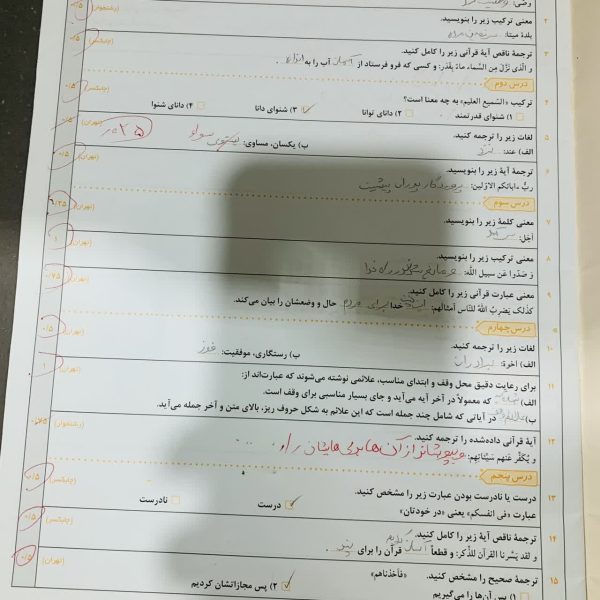 ۲ معنی ترکیب زیر را بنویسید. ۰/۵
بلدة میتا:
۳ ترجمهٔ ناقص آیهٔ قرآنی زیر را کامل کنید.
و الّذی نزّل مِن السّماء ماءً بِقَدَر: و کسی که فرو فرستاد از آسمان آب را به اندازه.
درس دوم
۴ ترکیب «السّمیع العلیم» به چه معنا است؟ ۰/۵
۱) شنوای قدرتمند ۲) دانای توانا ۳) شنوای دانا ۴) دانای شنوا
۵ لغات زیر را ترجمه کنید. (تهران) ۰/۵
الف) عند: نزد ب) یکسان، مساوی:
۶ ترجمهٔ آیهٔ زیر را بنویسید. (تهران) ۰/۵
ربُّ ءابائکم الاوّلین: پروردگار پدران پیشینت
درس سوم
۷ معنی کلمهٔ زیر را بنویسید. (تهران) ۰/۲۵
أجل:
۸ معنی ترکیب زیر را بنویسید. (تهران) ۱
وَ صَدّوا عَن سبیل اللّٰه: راه خدا
۹ معنی عبارت قرآنی زیر را کامل کنید. (تهران) ۰/۷۵
کذلک یَضرِبُ اللّٰهُ للنّاسِ أمثالَهُم: خدا برای مردم حال و وضعشان را بیان می‌کند.
درس چهارم
۱۰ لغات زیر را ترجمه کنید. (تهران) ۰/۵
الف) اخوة: برادران ب) رستگاری، موفقیت: فوز
۱۱ برای رعایت دقیق محل وقف و ابتدای مناسب، علائمی نوشته می‌شوند که عبارت‌اند از: (تهران) ۱
الف) که معمولاً در آخر آیه می‌آید و جای بسیار مناسبی برای وقف است.
ب) در آیاتی که شامل چند جمله است که این علائم به شکل حروف ریز، بالای متن و آخر جمله می‌آید.
۱۲ آیهٔ قرآنی داده‌شده را ترجمه کنید. ۰/۷۵
و یُکَفِّرَ عَنهم سَیِّئاتِهِم: و بپوشاند از آن‌ها بدی هایشان را
درس پنجم
۱۳ درست یا نادرست بودن عبارت زیر را مشخص کنید. ۰/۵
عبارت «فی انفسکم» یعنی «در خودتان» درست نادرست
۱۴ ترجمهٔ ناقص آیهٔ زیر را کامل کنید. ۰/۵
و لقد یَسَّرنا القرآن للذّکر: و قطعاً آسان کردیم قرآن را برای پند.
۱۵ ترجمهٔ صحیح را مشخص کنید. «فأخذناهم» (تهران) ۰/۵
۱) پس آن‌ها را می‌گیریم ۲) پس مجازاتشان کردیم